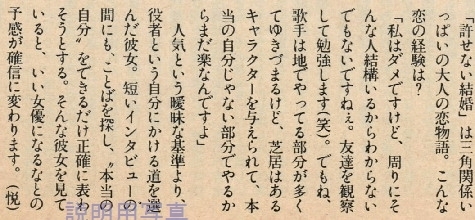 「許せない結婚」は三角関係い
っぱいの大人の恋物語。こんな
恋の経験は？
「私はダメですけど、周りにそ
んな人結構いるからわからない
でもないですねぇ。友達を観察
して勉強します（笑）。でもね、
歌手は地でやってる部分が多く
てゆきづまるけど、芝居はある
キャラクターを与えられて、本
当の自分じゃない部分でやるか
らまだ楽なんですよ」
　人気という曖昧な基準より、
役者という自分にかける道を選
んだ彼女。短いインタビューの
間にも、ことばを探し、〝本当の
自分〟をできるだけ正確に表わ
そうとする。そんな彼女を見て
いると、いい女優になるなとの
予感が確信に変わります。（悦）
説明用写真